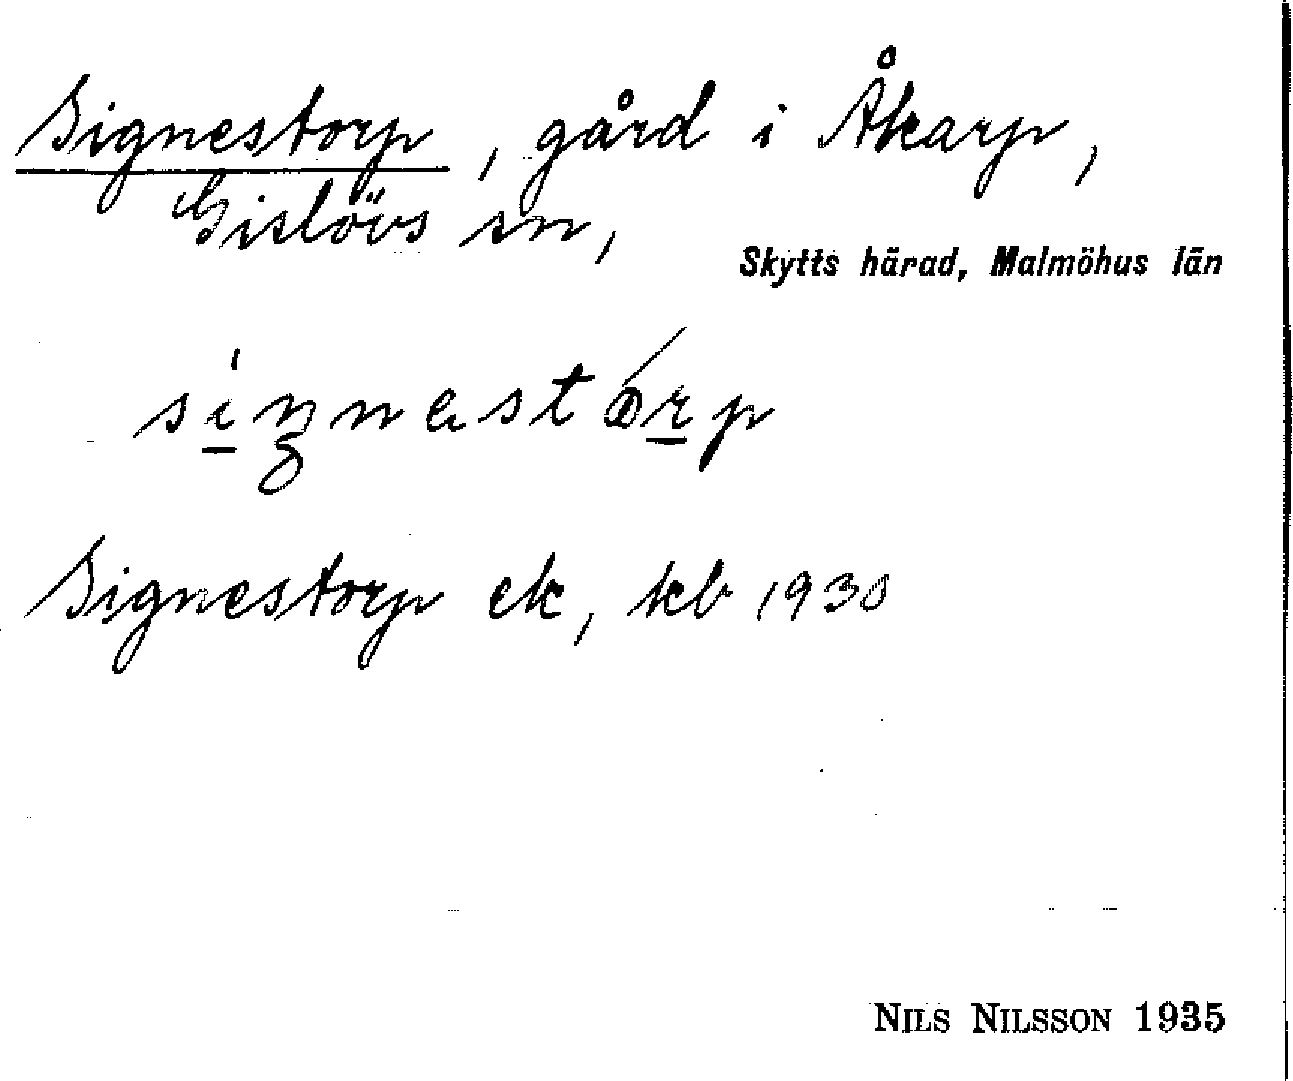 Signestorp, gård i Åkarp,
Gislövs sn,
Skytts härad, Malmöhus län
Signestorp ek, kb 1930
NILS NILSSON 1935